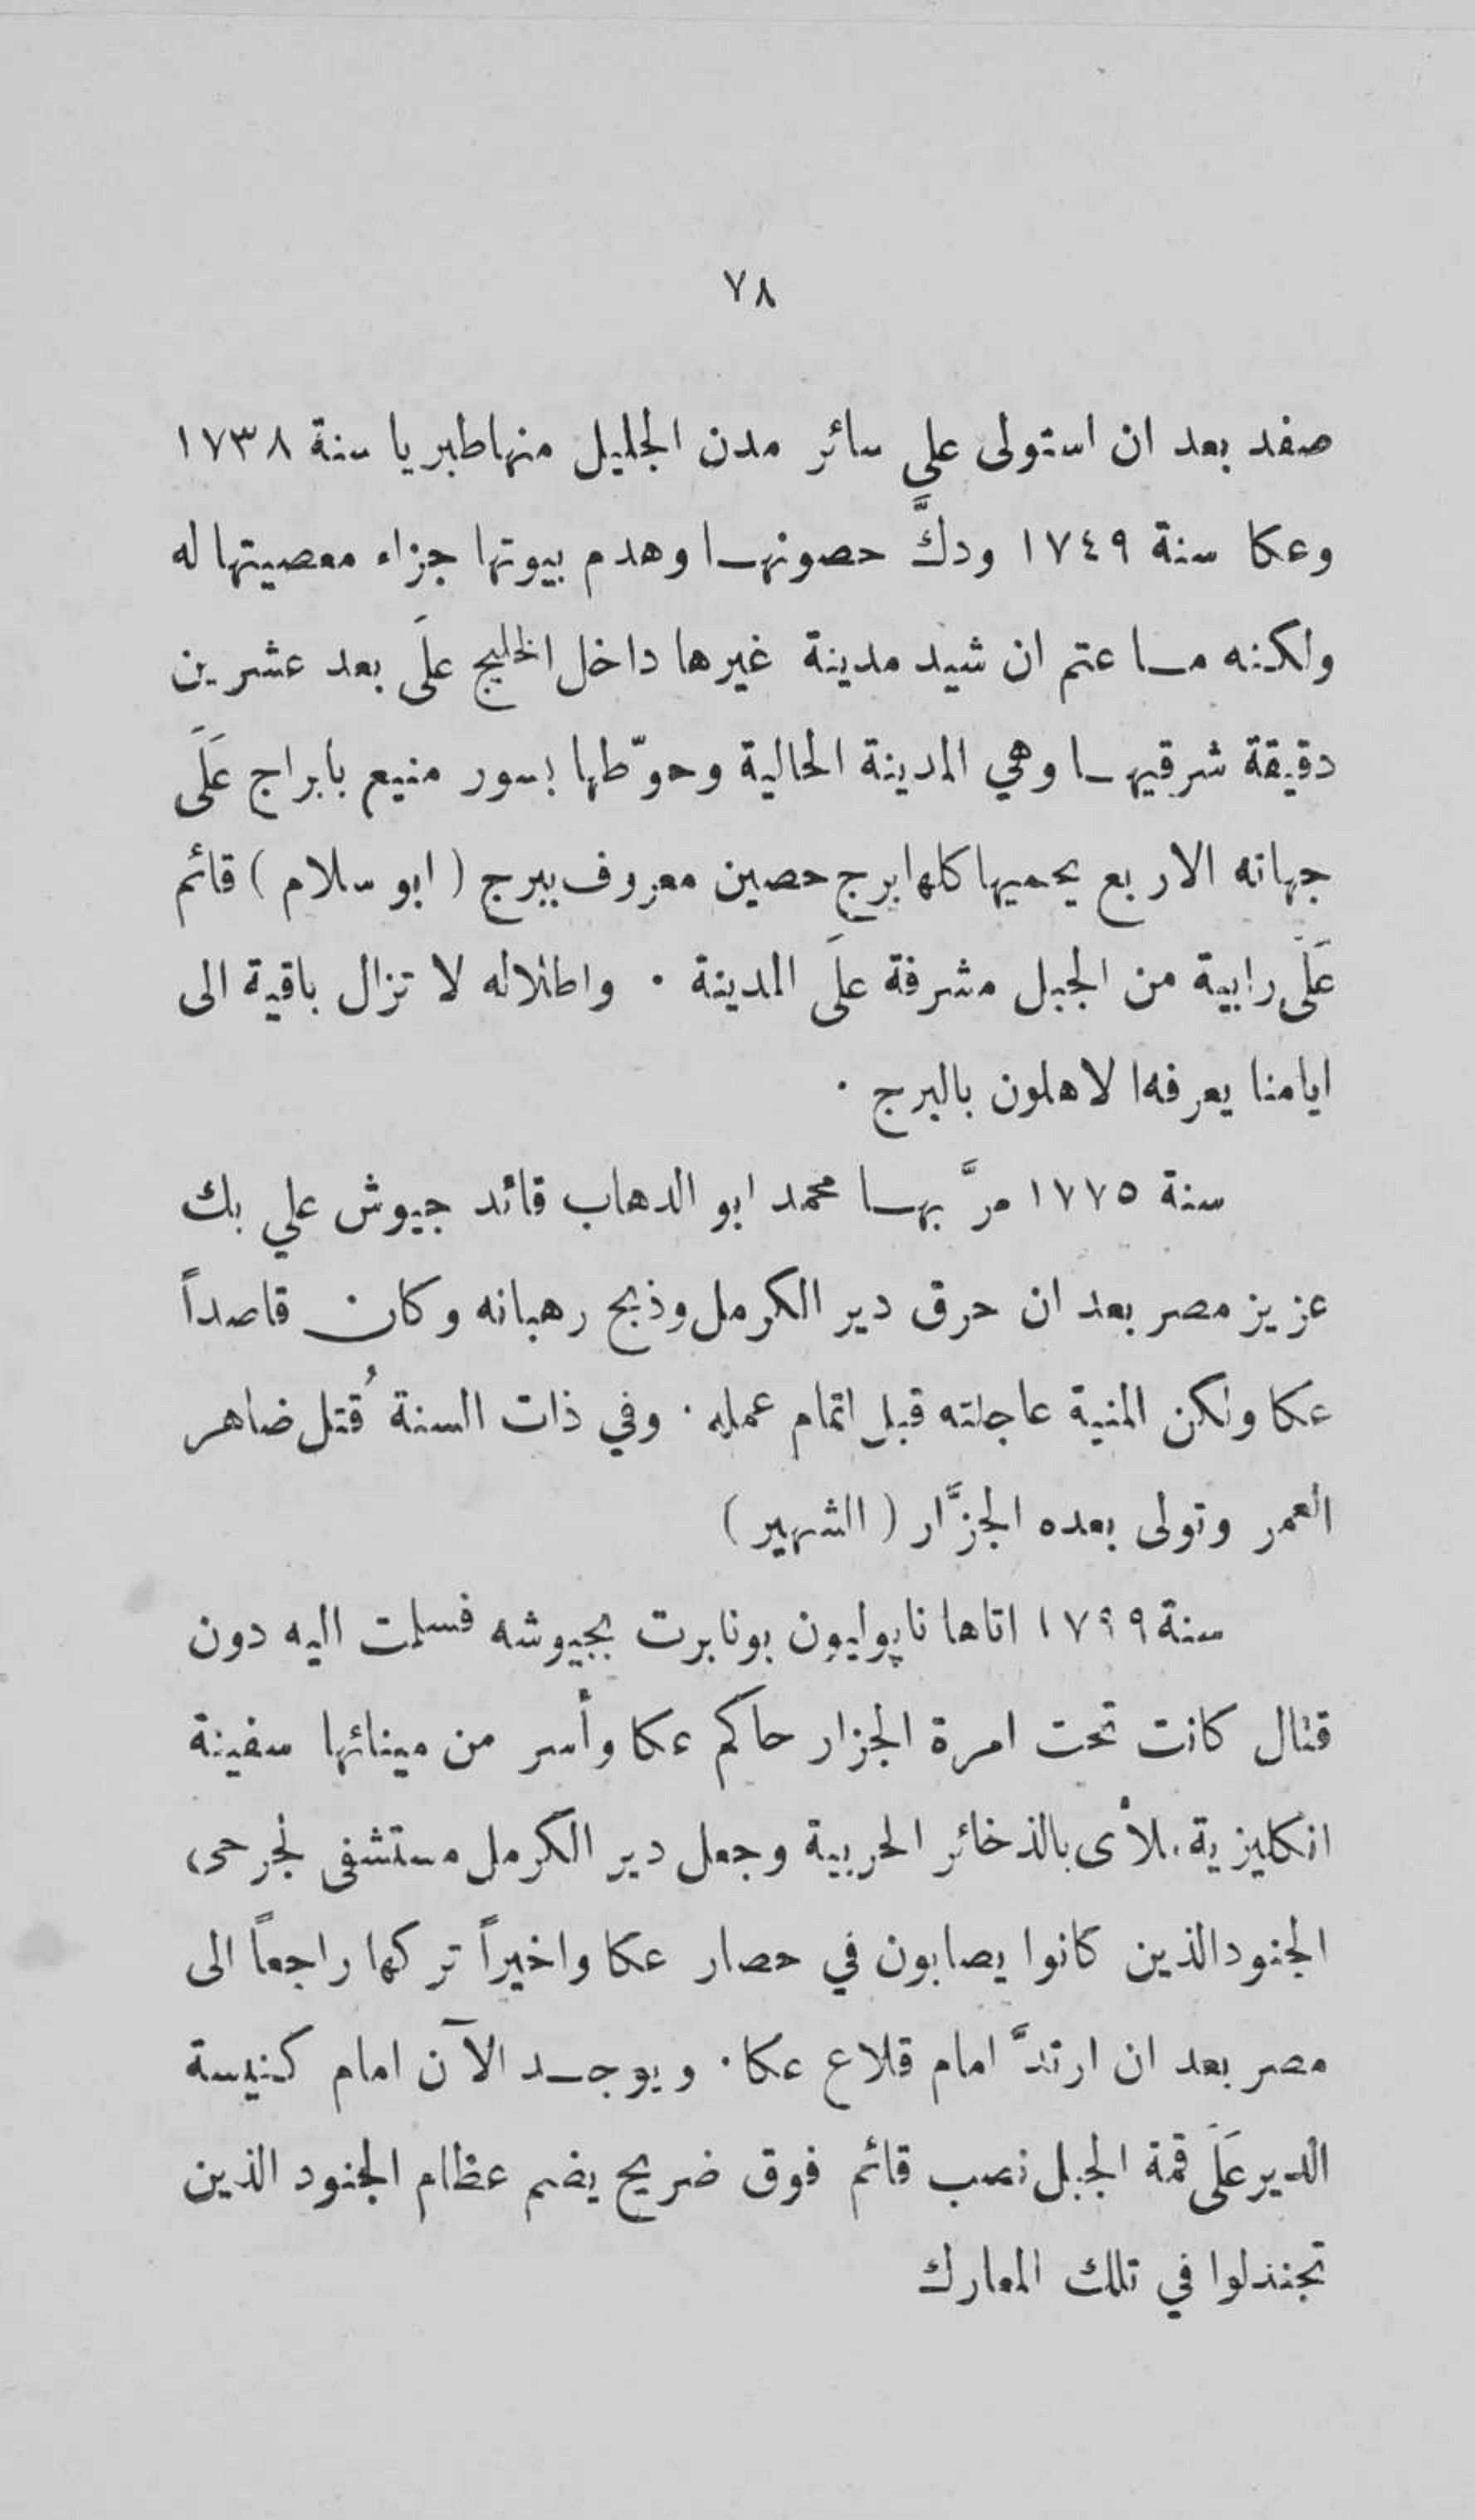 ٧٨
صفد بعد ان استولى على سائر مدن الجليل منها طبريا سنة ١٧٣٨
وعكا سنة ١٧٤٩ ودكَّ حصونهـا وهدم بيوتها جزاء معصيتها له
ولكنه مـا عتم ان شيد مدينة غيرها داخل الخليج علَى بعد عشرين
دقيقة شرقيهـا وهي المدينة الحالية وحوّطها بسور منيع بابراج عَلَى
جهاته الاربع يحميها كلها برج حصين معروف ببرج ( ابو سلام ) قائم
عَلَى رابية من الجبل مشرفة علَى المدينة . واطلاله لا تزال باقية الى
ايامنا يعرفها لاهلون بالبرج .
سنة ١٧٧٥ مرَّ بهـا محمد ابو الدهاب قائد جيوش علي بك
عزيز مصر بعد ان حرق دير الكرمل وذبح رهبانه وكان قاصداً
عكا ولكن المنية عاجلته قبل اتمام عمله . وفي ذات السنة قُتل ضاهر
العمر وتولى بعده الجزَّار ( الشهير )
سنة ١٧٩٩ اتاها ناپوليون بونابرت بجيوشه فسلمت اليه دون
قتال كانت تحت امرة الجزار حاكم عكا وأسر من مينائها سفينة
انكليزية ملأى بالذخائر الحربية وجعل دير الكرمل مستشفى لجرحى
الجنود الذين كانوا يصابون في حصار عكا واخيراً تركها راجعاً الى
مصر بعد ان ارتدَّ امام قلاع عكا . ويوجـد الآن امام كنيسة
الدير عَلَى قمة الجبل نصب قائم فوق ضريح يضم عظام الجنود الذين
تجندلوا في تلك المعارك